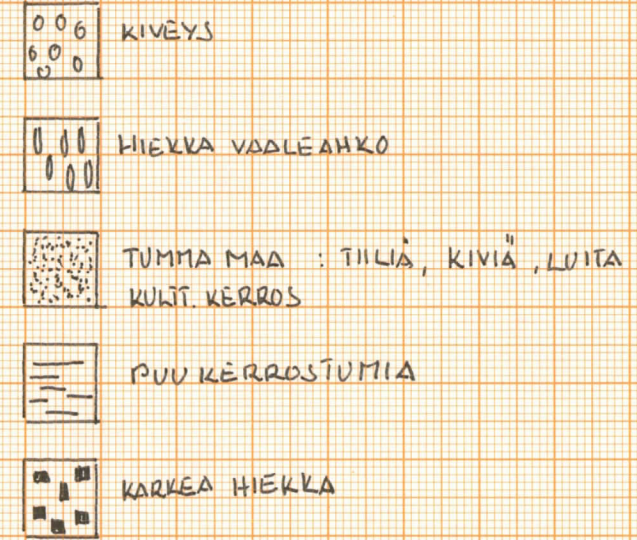 KIVEYS
HIEKKA VAALEAHKO
TUMMA MAA : TIILIÄ, KIVIÄ, LUITA
KULTT. KERROS
PUU KERROSTUMIA
KARKEA HIEKKA